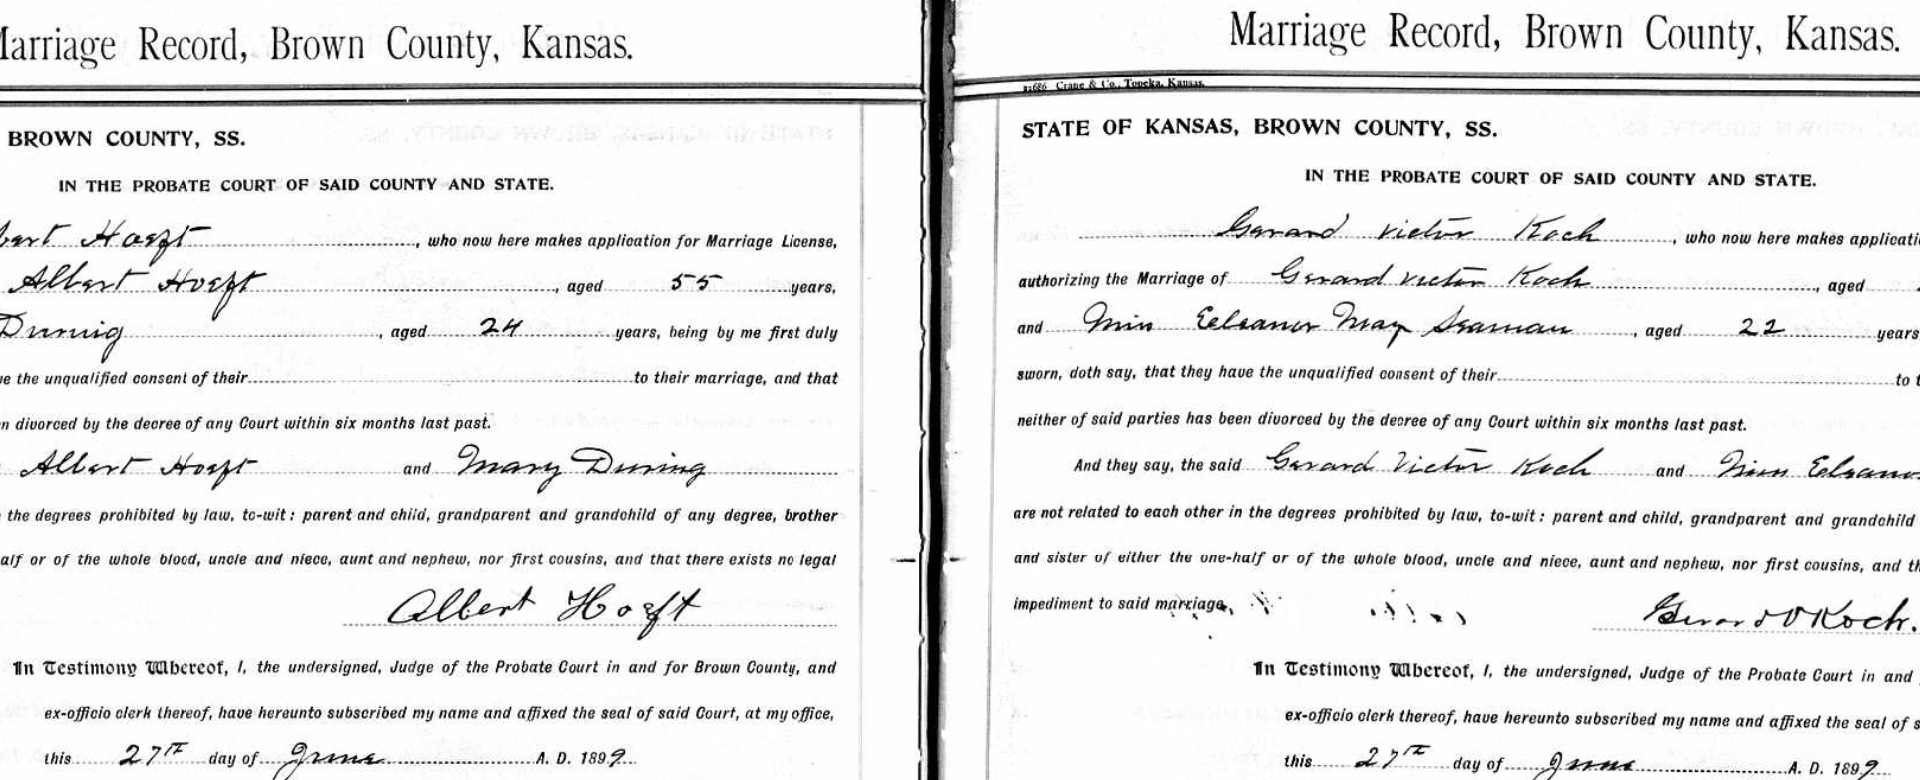 Marriage Record, Brown County, Kansas.
BROWN COUNTY, SS.
IN THE PROBATE COURT OF SAID COUNTY AND STATE.
bert Hoeft, who now here makes application for Marriage License,
Albert Hoeft, aged 55 years,
During, aged 24 years, being by me first duly
ve the unqualified consent of their to their marriage, and that
n divorced by the decree of any Court within six months last past.
Albert Hoeft and Mary During
the degrees prohibited by law, to-wit: parent and child, grandparent and grandchild of any degree, brother
alf or of the whole blood, uncle and niece, aunt and nephew, nor first cousins, and that there exists no legal
Albert Hoeft
In Testimony Whereof, I, the undersigned, Judge of the Probate Court in and for Brown County, and
ex-officio clerk thereof, have hereunto subscribed my name and affixed the seal of said Court, at my office,
this 27th day of June A. D. 1899.
Marriage Record, Brown County, Kansas.
Crane & Co., Topeka, Kansas.
STATE OF KANSAS, BROWN COUNTY, SS.
IN THE PROBATE COURT OF SAID COUNTY AND STATE.
Gerard Victor Koch, who now here makes applicati
authorizing the Marriage of Gerard Victor Koch, aged
and Miss Eeleanor May Seaman, aged 22 years
sworn, doth say, that they have the unqualified consent of their to t
neither of said parties has been divorced by the decree of any Court within six months last past.
And they say, the said Gerard Victor Koch and Miss Eeleanor
are not related to each other in the degrees prohibited by law, to-wit: parent and child, grandparent and grandchild
and sister of either the one-half or of the whole blood, uncle and niece, aunt and nephew, nor first cousins, and th
impediment to said marriage. Gerard V Koch.
In Testimony Whereof, I, the undersigned, Judge of the Probate Court in and
ex-officio clerk thereof, have hereunto subscribed my name and affixed the seal of s
this 27th day of June A. D. 1899.